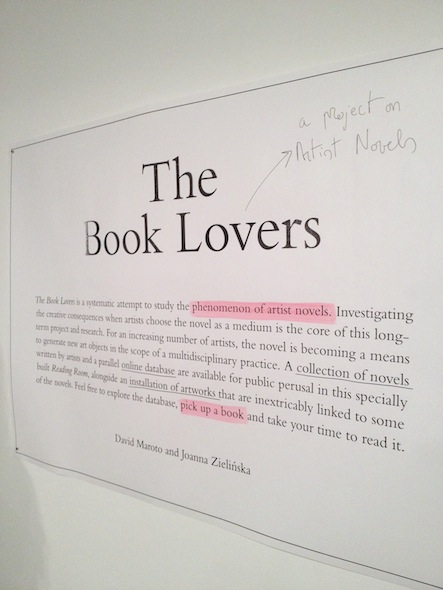 a project on
Artist Novels
The
Book Lovers
The Book Lovers is a systematic attempt to study the phenomenon of artist novels. Investigating
the creative consequences when artists choose the novel as a medium is the core of this long-
term project and research. For an increasing number of artists, the novel is becoming a means
to generate new art objects in the scope of a multidisciplinary practice. A collection of novels
written by artists and a parallel online database are available for public perusal in this specially
built Reading Room, alongside an installation of artworks that are inextricably linked to some
of the novels. Feel free to explore the database, pick up a book and take your time to read it.
David Maroto and Joanna Zielińska